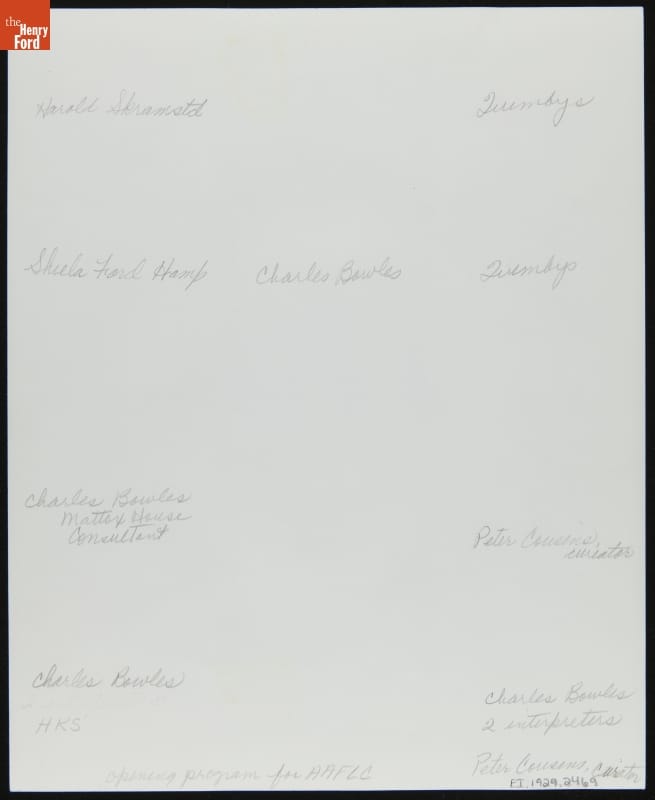 the
Henry
Ford
Harold Skramstd
Twembys
Shiela Ford Hamp
Charles Bowles
Twembys
Charles Bowles
Mattox House
Consultant
Peter Cousins,
curator
Charles Bowles
HKS
Charles Bowles
2 interpreters
opening program for AAFLC
Peter Cousens, Curator
ET.1929.2469